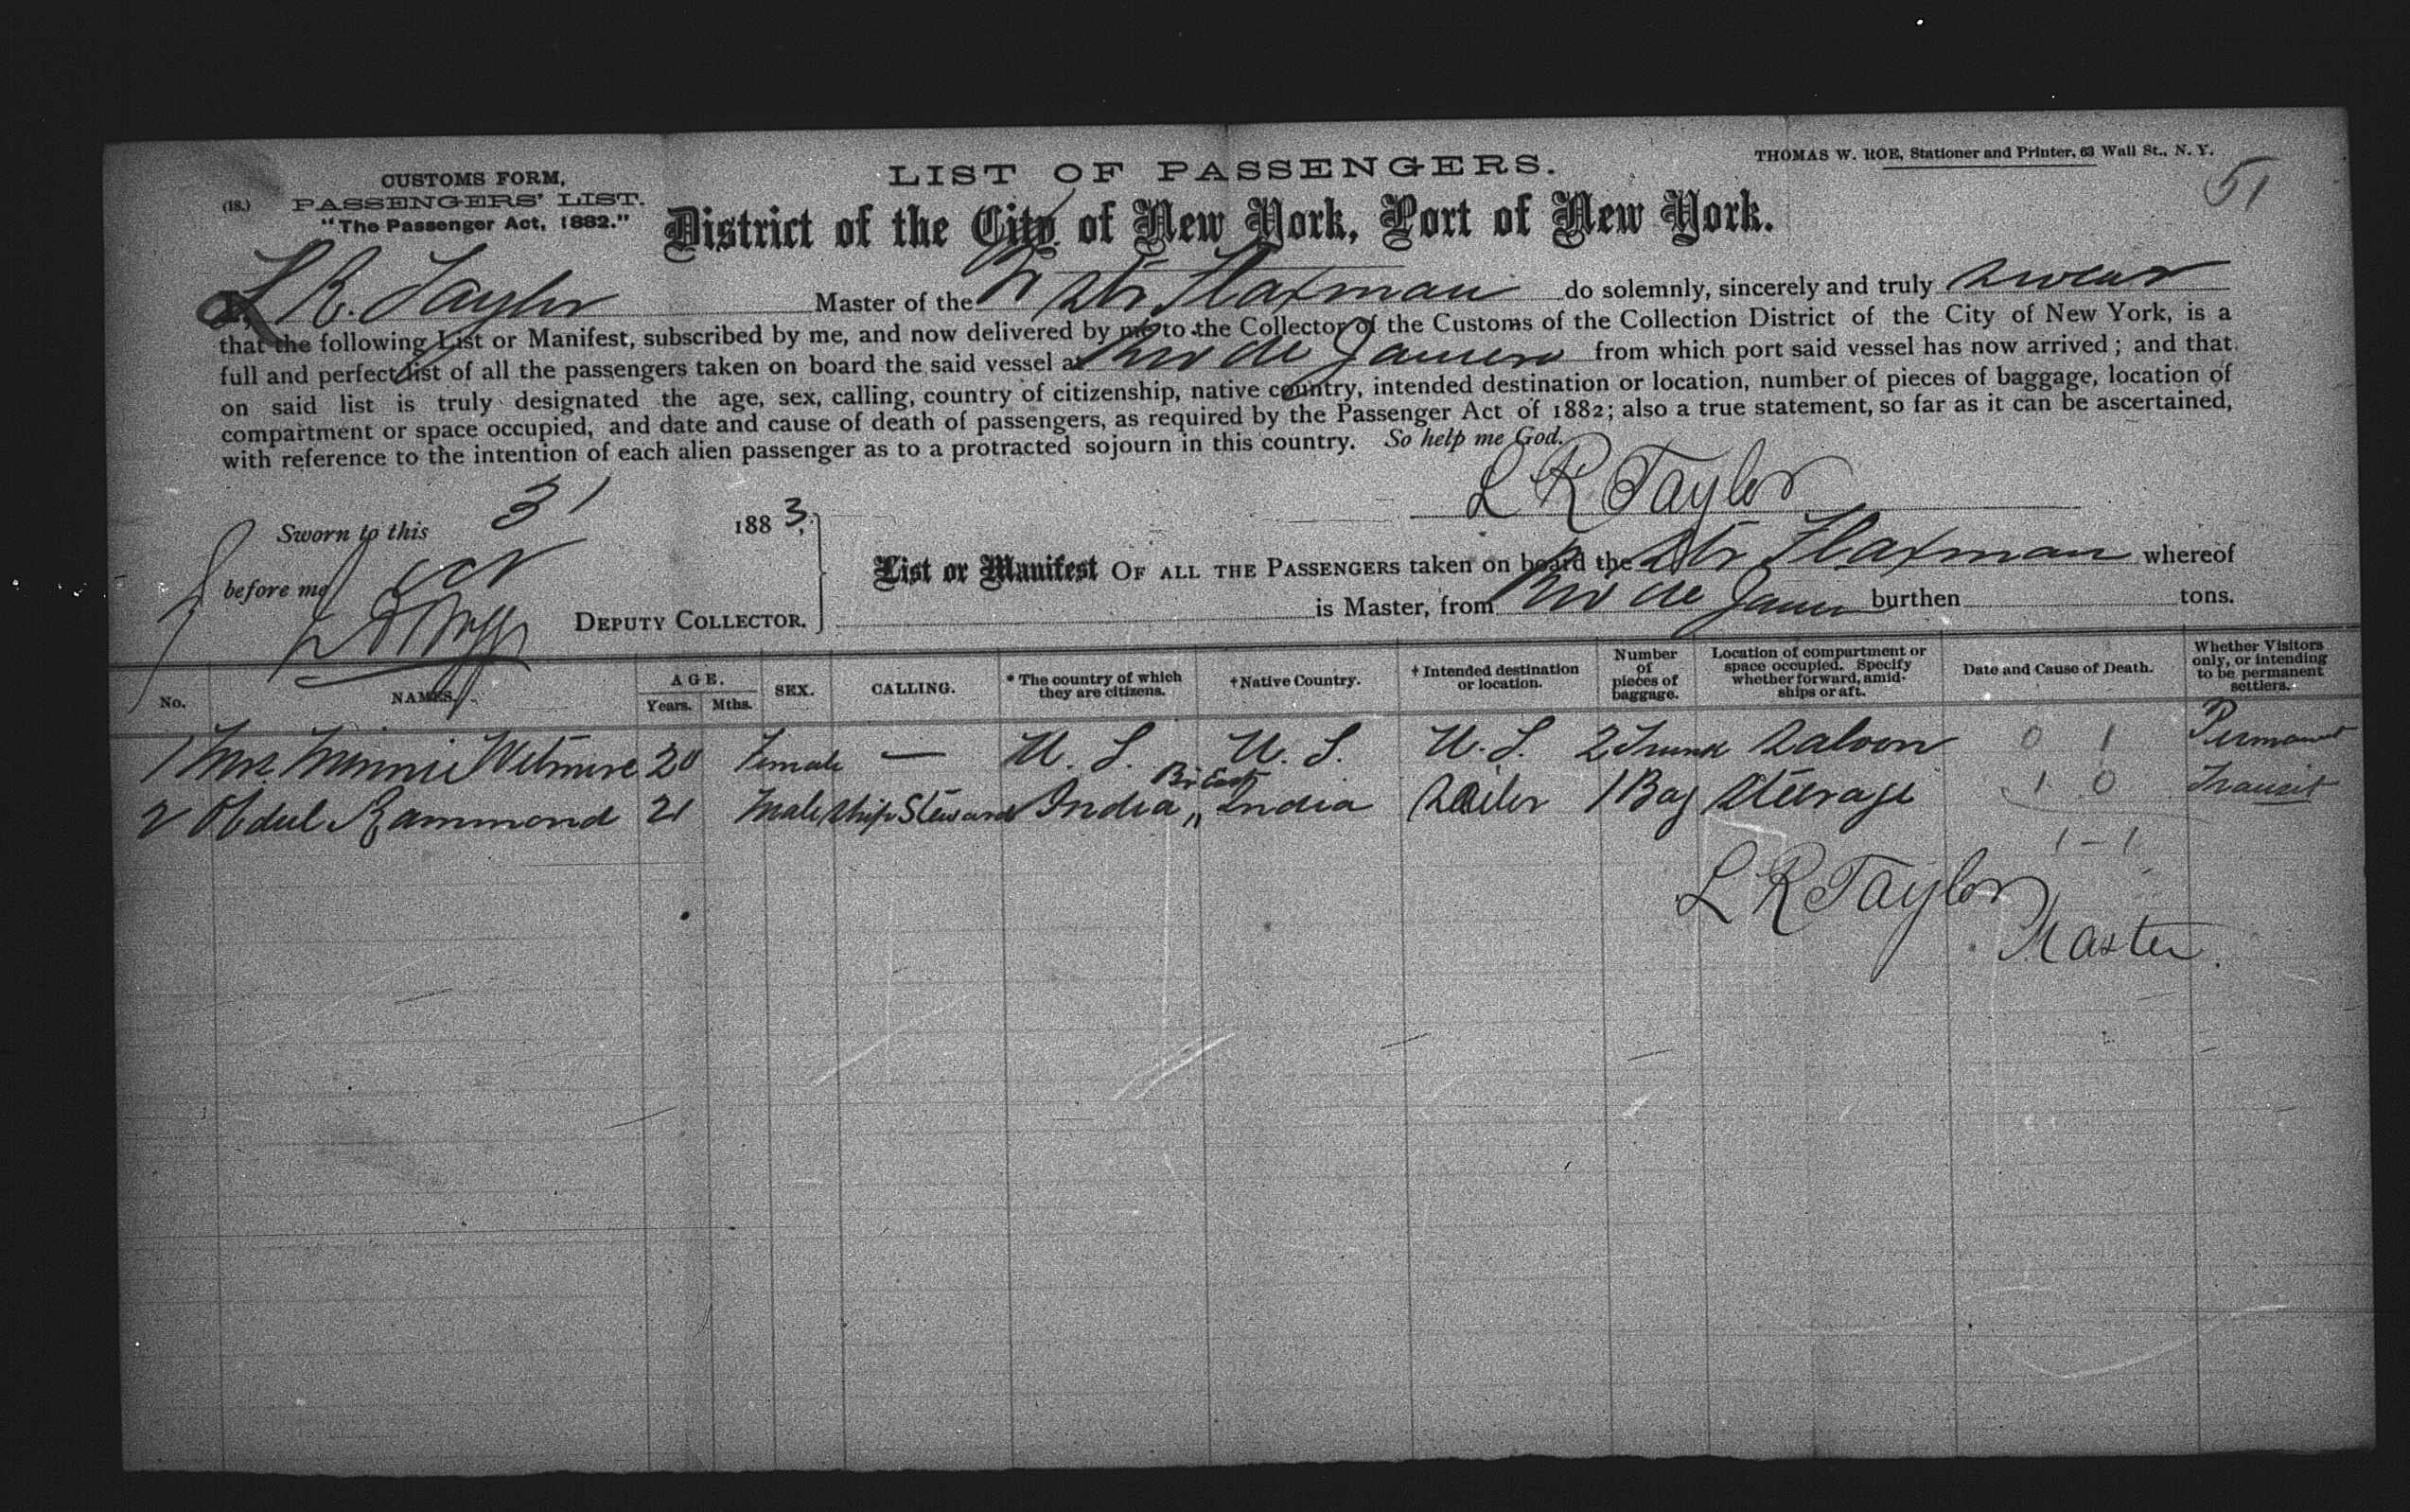 CUSTOMS FORM,
(18.) PASSENGERS' LIST.
"The Passenger Act, 1882."
LIST OF PASSENGERS.
THOMAS W. ROE, Stationer and Printer, 63 Wall St., N. Y.
51
District of the City of New York, Port of New York.
I, L R. Taylor Master of the Str Flaxman do solemnly, sincerely and truly swear
that the following List or Manifest, subscribed by me, and now delivered by me to the Collector of the Customs of the Collection District of the City of New York, is a
full and perfect list of all the passengers taken on board the said vessel at Rio de Janeiro from which port said vessel has now arrived; and that
on said list is truly designated the age, sex, calling, country of citizenship, native country, intended destination or location, number of pieces of baggage, location of
compartment or space occupied, and date and cause of death of passengers, as required by the Passenger Act of 1882; also a true statement, so far as it can be ascertained,
with reference to the intention of each alien passenger as to a protracted sojourn in this country. So help me God.
L R Taylor
Sworn to this 31 1883,
before me
DEPUTY COLLECTOR.
List or Manifest OF ALL THE PASSENGERS taken on board the Str Flaxman whereof
is Master, from Rio de Janeiro burthen tons.
No. NAMES. AGE. Years. Mths. SEX. CALLING. * The country of which they are citizens. † Native Country. † Intended destination or location. Number of pieces of baggage. Location of compartment or space occupied. Specify whether forward, amidships or aft. Date and Cause of Death. Whether Visitors only, or intending to be permanent settlers.
1 Mrs. Minnie Witmire 20 Female — U. S. U. S. U. S. 2 Trunk Saloon 0 1 Permanent
2 Abdul Rammond 21 Male Ship Steward India " Br East India Sailor 1 Bag Steerage 1 0 Transit
1 - 1
L R Taylor
Master.